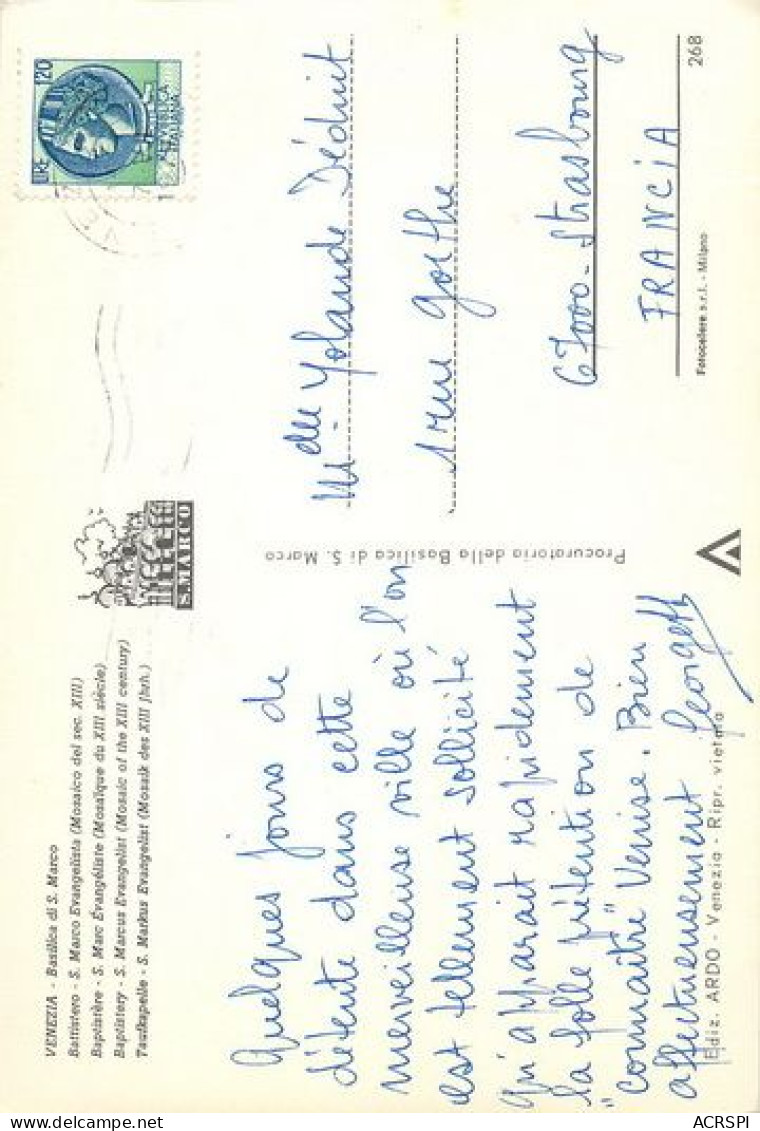 VENEZIA - Basilica di S. Marco
Battistero - S. Marco Evangelista (Mosaico del sec. XIII)
Baptistère - S. Marc Évangéliste (Mosaïque du XIII siècle)
Baptistery - S. Marcus Evangelist (Mosaic of the XIII century)
Taufkapelle - S. Markus Evangelist (Mosaik des XIII Jhrh.)
S. MARCO
Quelques jours de
détente dans cette
merveilleuse ville où l'on
est tellement sollicité
qu'apparait rapidement
la folle prétention de
"connaître" Venise. Bien
affectueusement
Ediz. ARDO - Venezia - Ripr. vietata
Procuratoria della Basilica di S. Marco
LIRE 120
REPUBBLICA
ITALIANA
Melle Yolande Déduit
1 rue Goethe
67000 - Strasbourg
FRANCIA
Fotocelere s.r.l. - Milano
268
ACRSPI